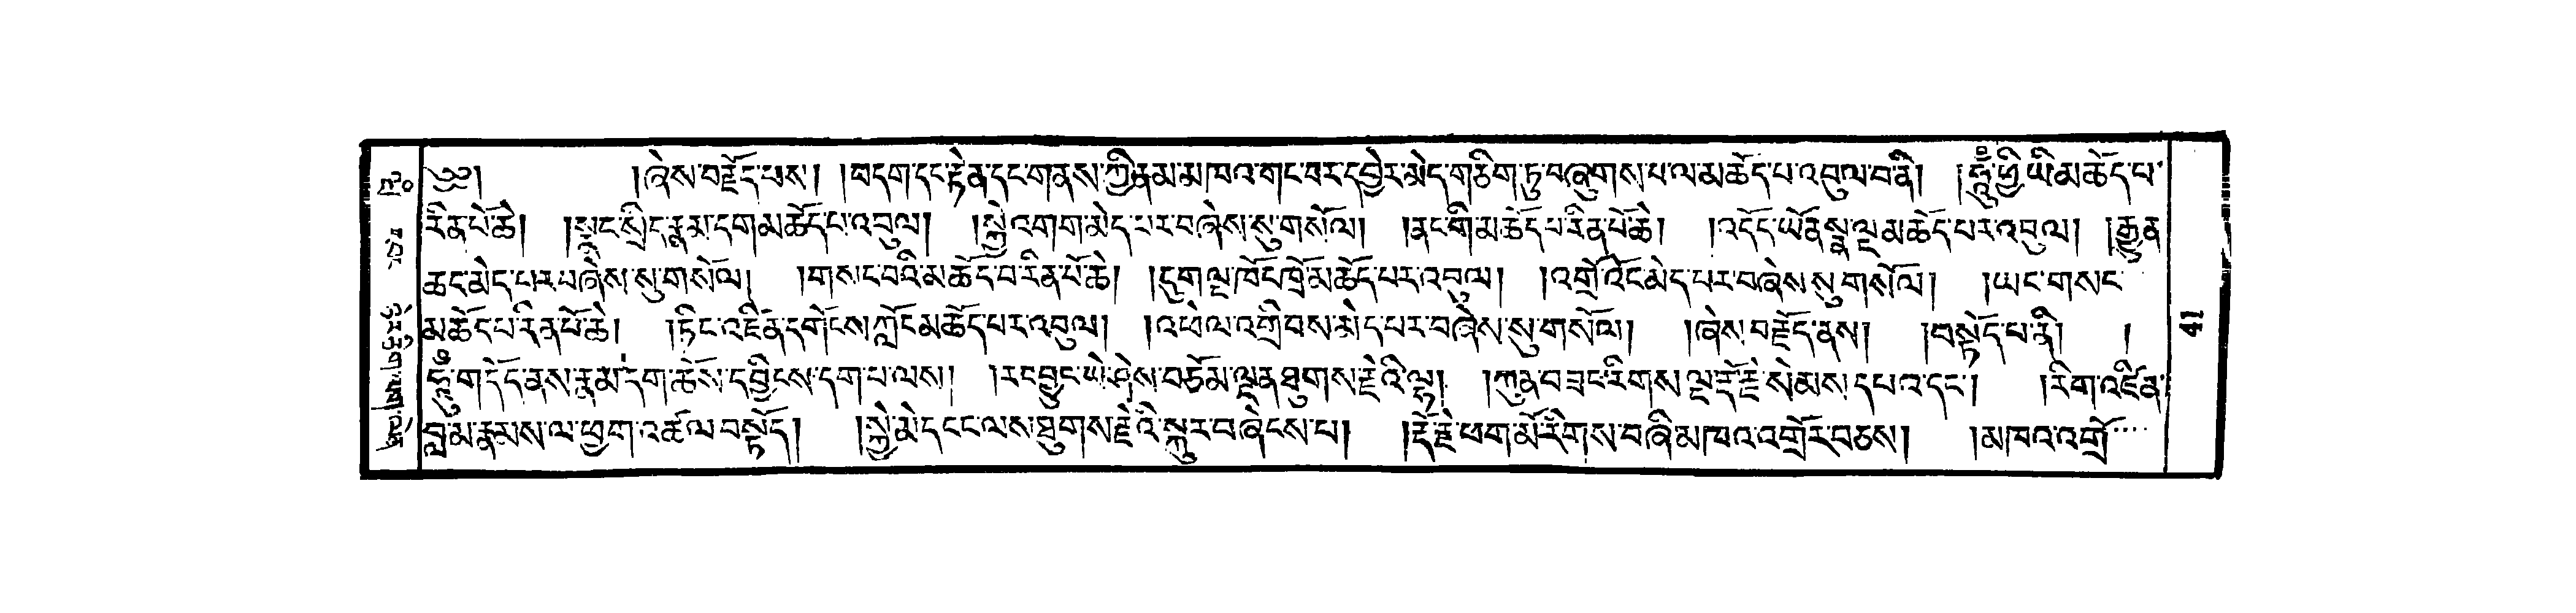 ༄། །ཞེས་བརྗོད་པས། །བདག་དང་རྟེན་དང་གནས་ཀྱི་རྣམ་མཁའ་གང་བར་དབྱེར་མེད་གཅིག་ཏུ་བཞུགས་པ་ལ་མཆོད་པ་འབུལ་བ་ནི། །ཧཱུྃ་ཕྱི་ཡི་མཆོད་པ་
རིན་པོ་ཆེ། །སྣང་སྲིད་རྣམ་དག་མཆོད་པ་འབུལ། །སྐྱེ་འགག་མེད་པར་བཞེས་སུ་གསོལ། །ནང་གི་མཆོད་པ་རིན་པོ་ཆེ། །འདོད་ཡོན་སྣ་ལྔ་མཆོད་པར་འབུལ། །རྒྱུན་
ཆད་མེད་པར་བཞེས་སུ་གསོལ། །གསང་བའི་མཆོད་པ་རིན་པོ་ཆེ། །དུག་ལྔ་ཁོང་ཁྲོ་མཆོད་པར་འབུལ། །འགྲོ་འོང་མེད་པར་བཞེས་སུ་གསོལ། །ཡང་གསང་
མཆོད་པ་རིན་པོ་ཆེ། །ཏིང་འཛིན་དགོངས་ཀློང་མཆོད་པར་འབུལ། །འཕེལ་འགྲིབས་མེད་པར་བཞེས་སུ་གསོལ། །ཞེས་བརྗོད་ནས། །བསྟོད་པ་ནི། །
ཧཱུྃ་ག་དོད་ནས་རྣམ་དག་ཆོས་དབྱིངས་དག་པ་ལས། །རང་བྱུང་ཡེ་ཤེས་བཅོམ་ལྡན་ཐུགས་རྗེའི་ལྷ། །ཀུན་བཟང་རིགས་ལྔ་རྡོ་རྗེ་སེམས་དཔའ་དང་། །རིག་འཛིན་
བླ་མ་རྣམས་ལ་ཕྱག་འཚལ་བསྟོད། །སྐྱེ་མེད་ངང་ལས་ཐུགས་རྗེའི་སྐུར་བཞེངས་པ། །རྡོ་རྗེ་ཕག་མོ་རིགས་བཞི་མཁའ་འགྲོར་བཅས། །མཁའ་འགྲོ